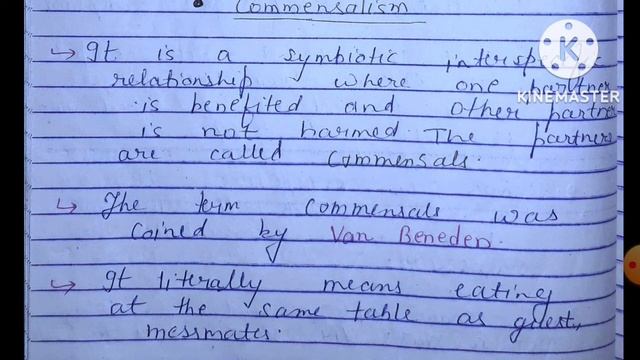 Commensalism
→ It is a symbiotic
relationship where one partner
is benefited and other partner
is not harmed. The partners
are called commensals.
→ The term commensals was
coined by Van Beneden.
→ It literally means eating
at the same table as guest,
messmates.
KINEMASTER